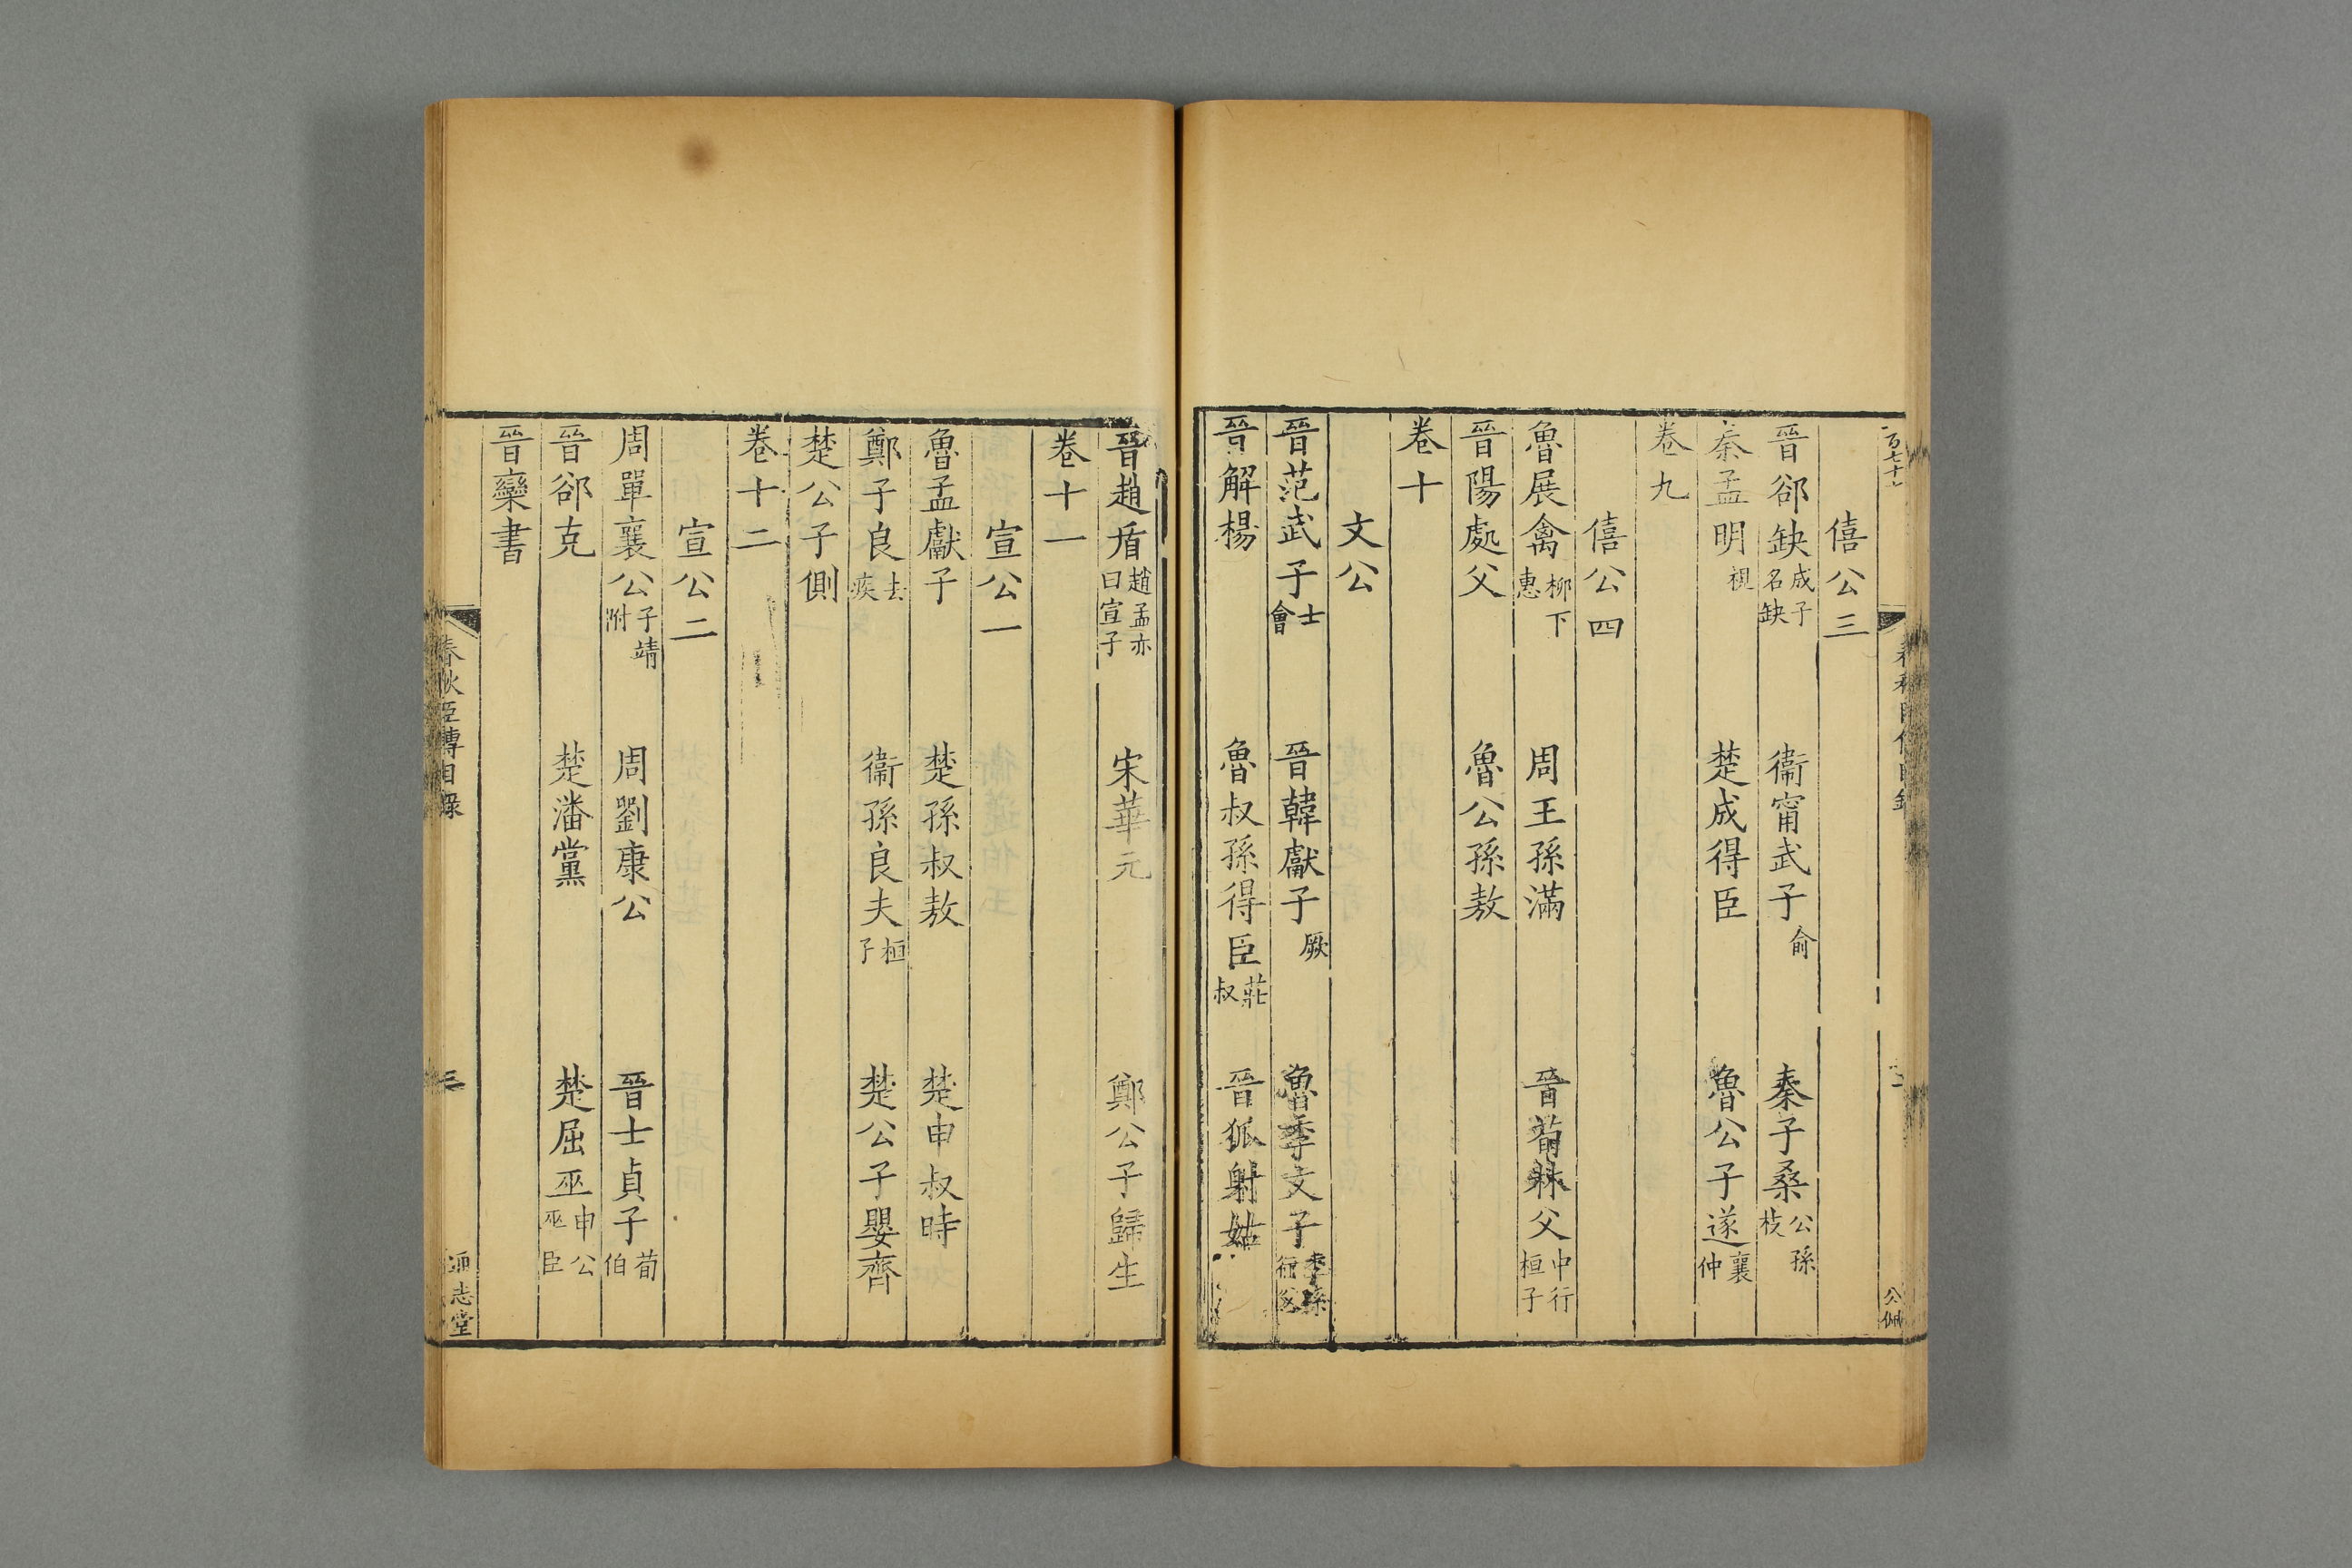 僖公三
晉郤缺成子名缺 衞甯武子俞 秦子桑公孫枝
秦孟明視 楚成得臣 魯公子遂襄仲
卷九
僖公四
魯展禽柳下惠 周王孫滿 晉荀林父中行桓子
晉陽處父 魯公孫敖
卷十
文公
晉范武子士會 晉韓獻子厥 魯季文子季孫行父
晉解楊 魯叔孫得臣莊叔 晉狐射姑
晉趙盾趙孟亦曰宣子 宋華元 鄭公子歸生
卷十一
宣公一
魯孟獻子 楚孫叔敖 楚申叔時
鄭子良去疾 衞孫良夫桓子 楚公子嬰齊
楚公子側
卷十二
宣公二
周單襄公子靖附 周劉康公 晉士貞子荀伯
晉郤克 楚潘黨 楚屈巫申公巫臣
晉欒書
春秋臣傳目錄 三 通志堂